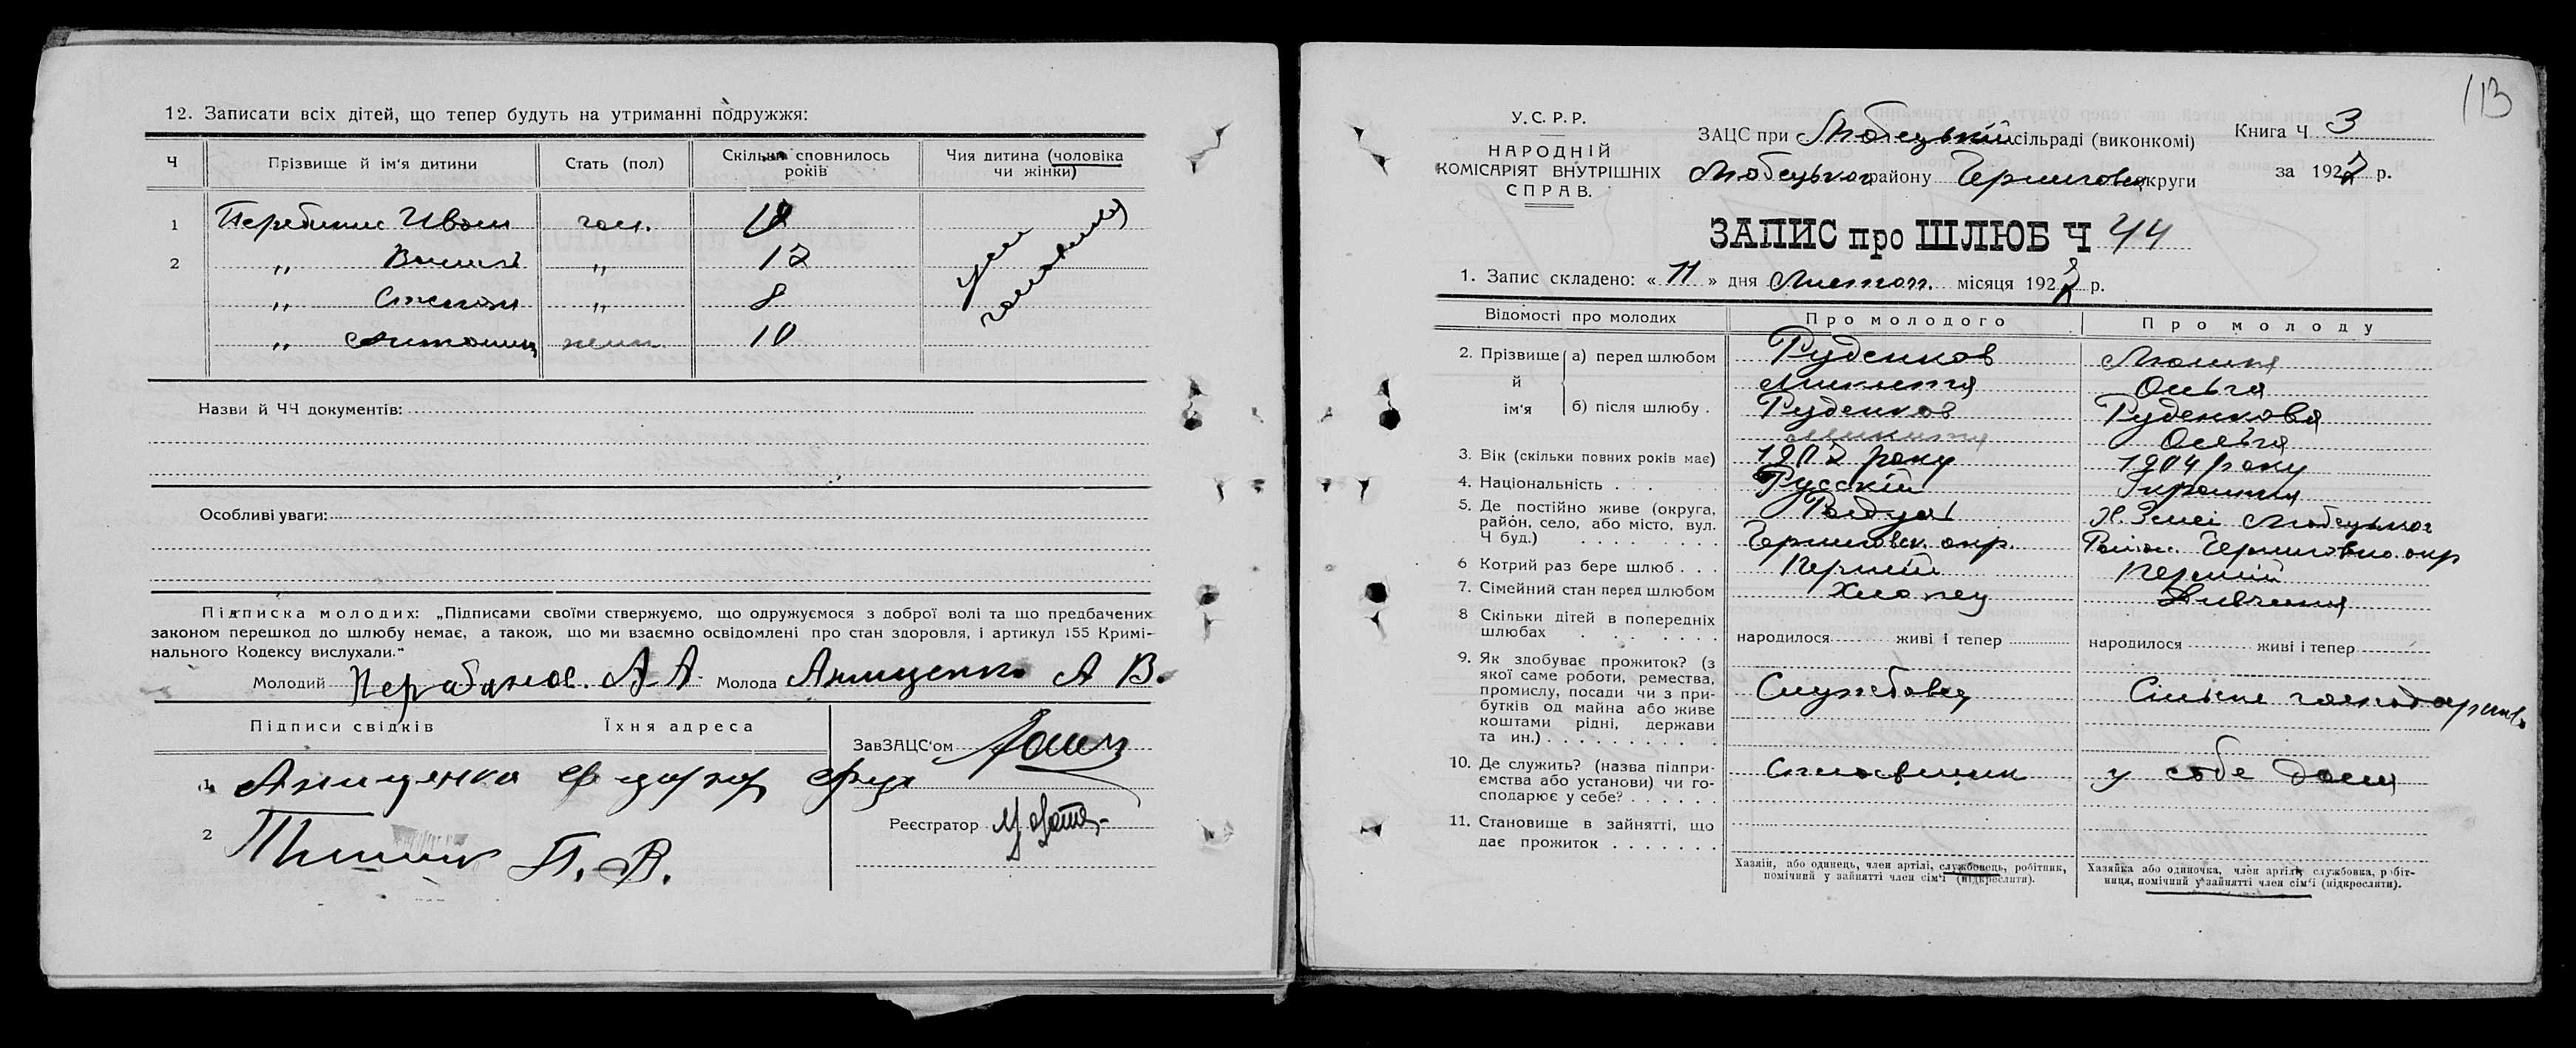 12. Записати всіх дітей, що тепер будуть на утриманні подружжя:
Ч Прізвище й ім'я дитини Стать (пол) Скільки сповнилось років Чия дитина (чоловіка чи жінки)
1 Иван чол. 18
2 „ „ 12
„ Степан „ 8
„ жин. 10
Назви й ЧЧ документів:
Особливі уваги:
Підписка молодих: „Підписами своїми стверджуємо, що одружуємося з доброї волі та що предбачених
законом перешкод до шлюбу немає, а також, що ми взаємно освідомлені про стан здоровля, і артикул 155 Кримі-
нального Кодексу вислухали."
Молодий А А. Молода Анищенко А В.
Підписи свідків Їхня адреса
ЗавЗАЦС'ом
1 Анищенко
2 П. В.
Реєстратор
113
У.С.Р.Р.
НАРОДНІЙ
КОМІСАРІЯТ ВНУТРІШНІХ
СПРАВ.
ЗАЦС при Любецький сільраді (виконкомі)
Любецького району Черниговск округи
Книга Ч 3
за 1927 р.
ЗАПИС про ШЛЮБ Ч 44
1. Запис складено: « 11 » дня Листоп. місяця 1927 р.
Відомості про молодих Про молодого Про молоду
2. Прізвище й ім'я а) перед шлюбом Руденков Микита Ольга
б) після шлюбу . Руденков Микита Руденкова Ольга
3. Вік (скільки повних років має) 1902 року 1904 року
4. Національність . . Русский Украинка
5. Де постійно живе (округа,
район, село, або місто, вул.
Ч буд.) Черниговск. окр. Любецького Район. Черниговско. окр
6 Котрий раз бере шлюб . . . Перший Перший
7. Сімейний стан перед шлюбом Хлопец Дивчина
8 Скільки дітей в попередніх
шлюбах . . . народилося живі і тепер народилося живі і тепер
9. Як здобуває прожиток? (з
якої саме роботи, ремества,
промислу, посади чи з при-
бутків од майна або живе
коштами рідні, держави
та ин.) Службовец Сильске господарство
10. Де служить? (назва підпри-
ємства або установи) чи го-
сподарює у себе? у собе дома
11. Становище в зайнятті, що
дає прожиток
Хазяїн, або одинець, член артілі, службовець, робітник,
помічний у зайнятті член сім'ї (підкреслити).
Хазяйка або одиночка, член артілі, службовка, робіт-
ниця, помічний у зайнятті член сім'ї (підкреслити).